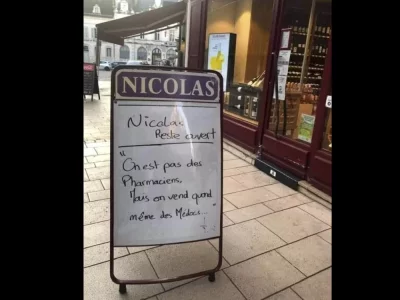 NICOLAS
Nicolas
Reste ouvert
"On est pas des
Pharmaciens.
Mais on vend quand
même des Médocs..."